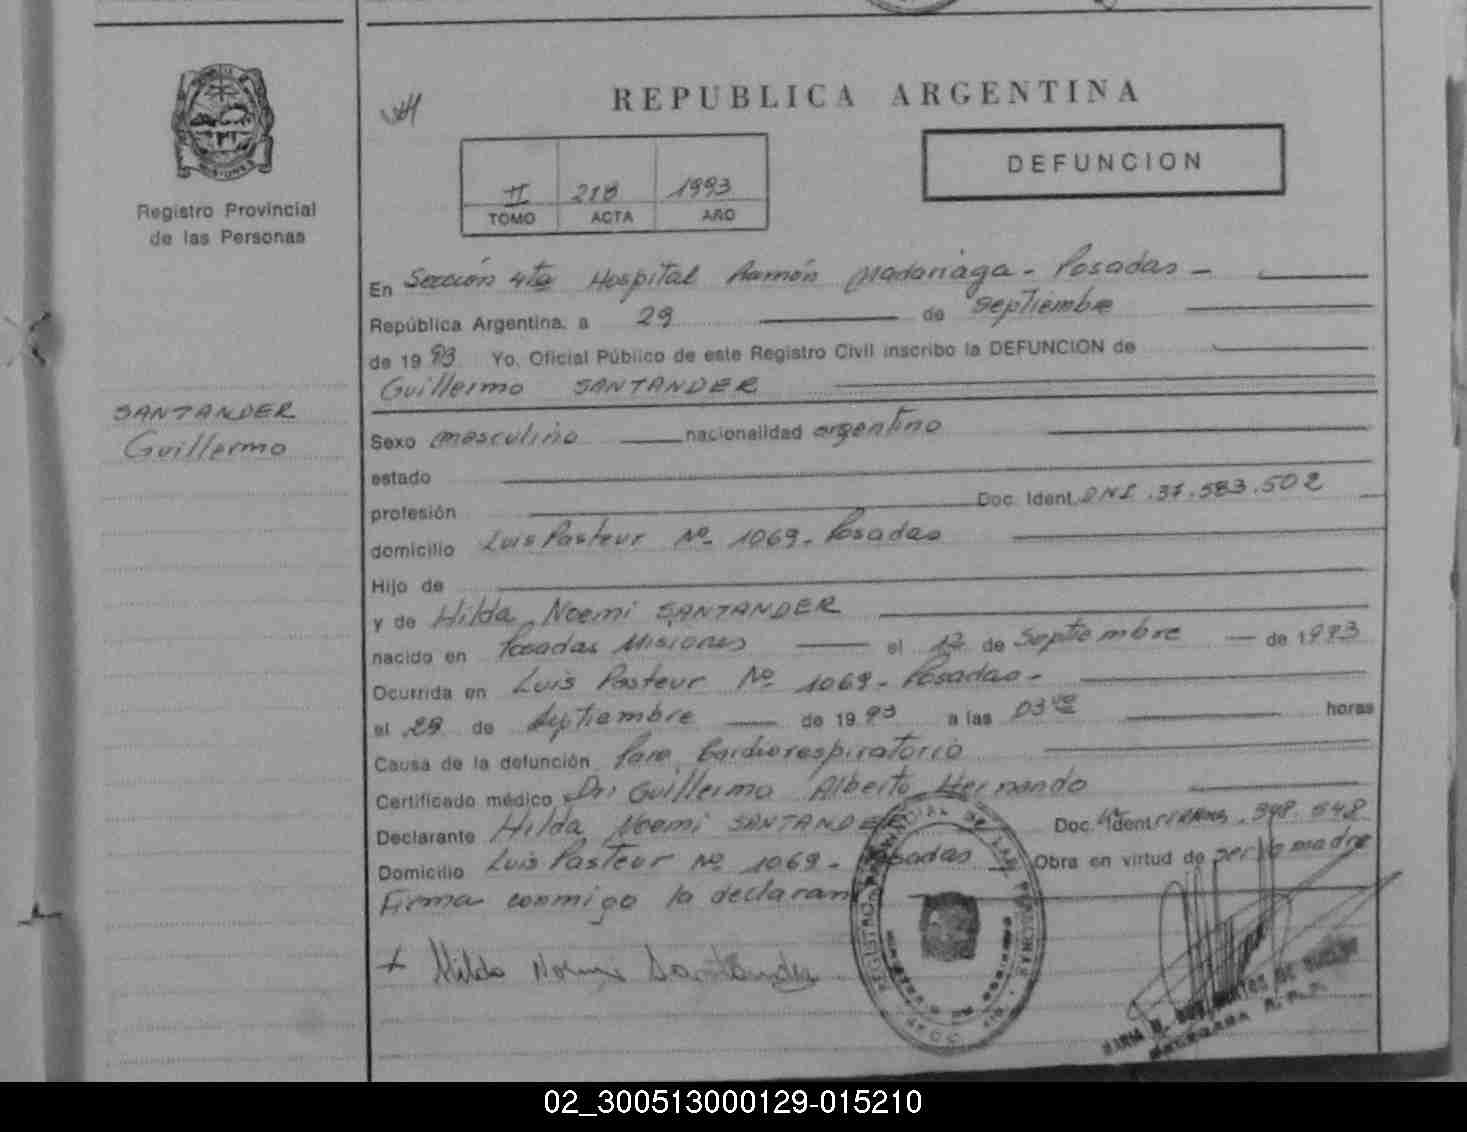 REPUBLICA ARGENTINA
DEFUNCION
II 218 1993
TOMO ACTA AÑO
Registro Provincial
de las Personas
SANTANDER
Guillermo
En Sección 4ta Hospital Ramón Madariaga - Posadas -
República Argentina, a 29 de septiembre
de 1993 Yo, Oficial Público de este Registro Civil inscribo la DEFUNCION de
Guillermo SANTANDER
Sexo masculino nacionalidad argentino
estado
profesión Doc. Ident. DNI. 37.583.502
domicilio Luis Pasteur Nº 1069 - Posadas
Hijo de
y de Hilda Noemi SANTANDER
nacido en Posadas Misiones el de Septiembre de 1993
Ocurrida en Luis Pasteur Nº 1069 - Posadas -
el 29 de septiembre de 1993 a las 03 horas
Causa de la defunción Paro Cardiorespiratorio
Certificado médico Dr. Guillermo Alberto Hernando
Declarante Hilda Noemi SANTANDER Doc. Ident. 548
Domicilio Luis Pasteur Nº 1069 - Posadas Obra en virtud de ser la madre
Firma conmigo la declaran
+ Hilda Noemi Santander
02_300513000129-015210